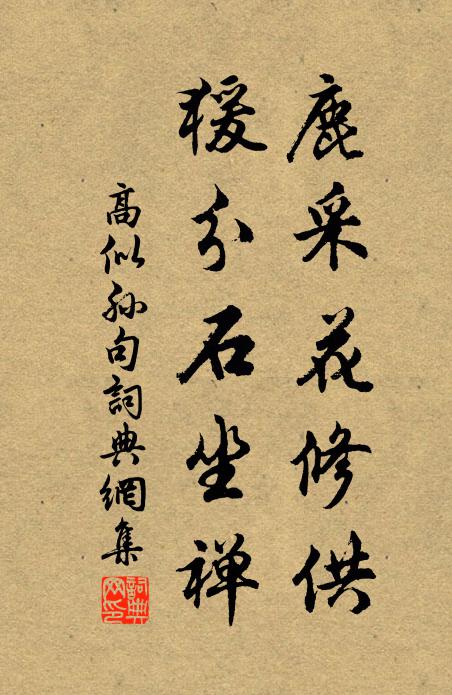 鹿采花修供
猨分石坐禅
高似孙句詞典網集
詞典网印